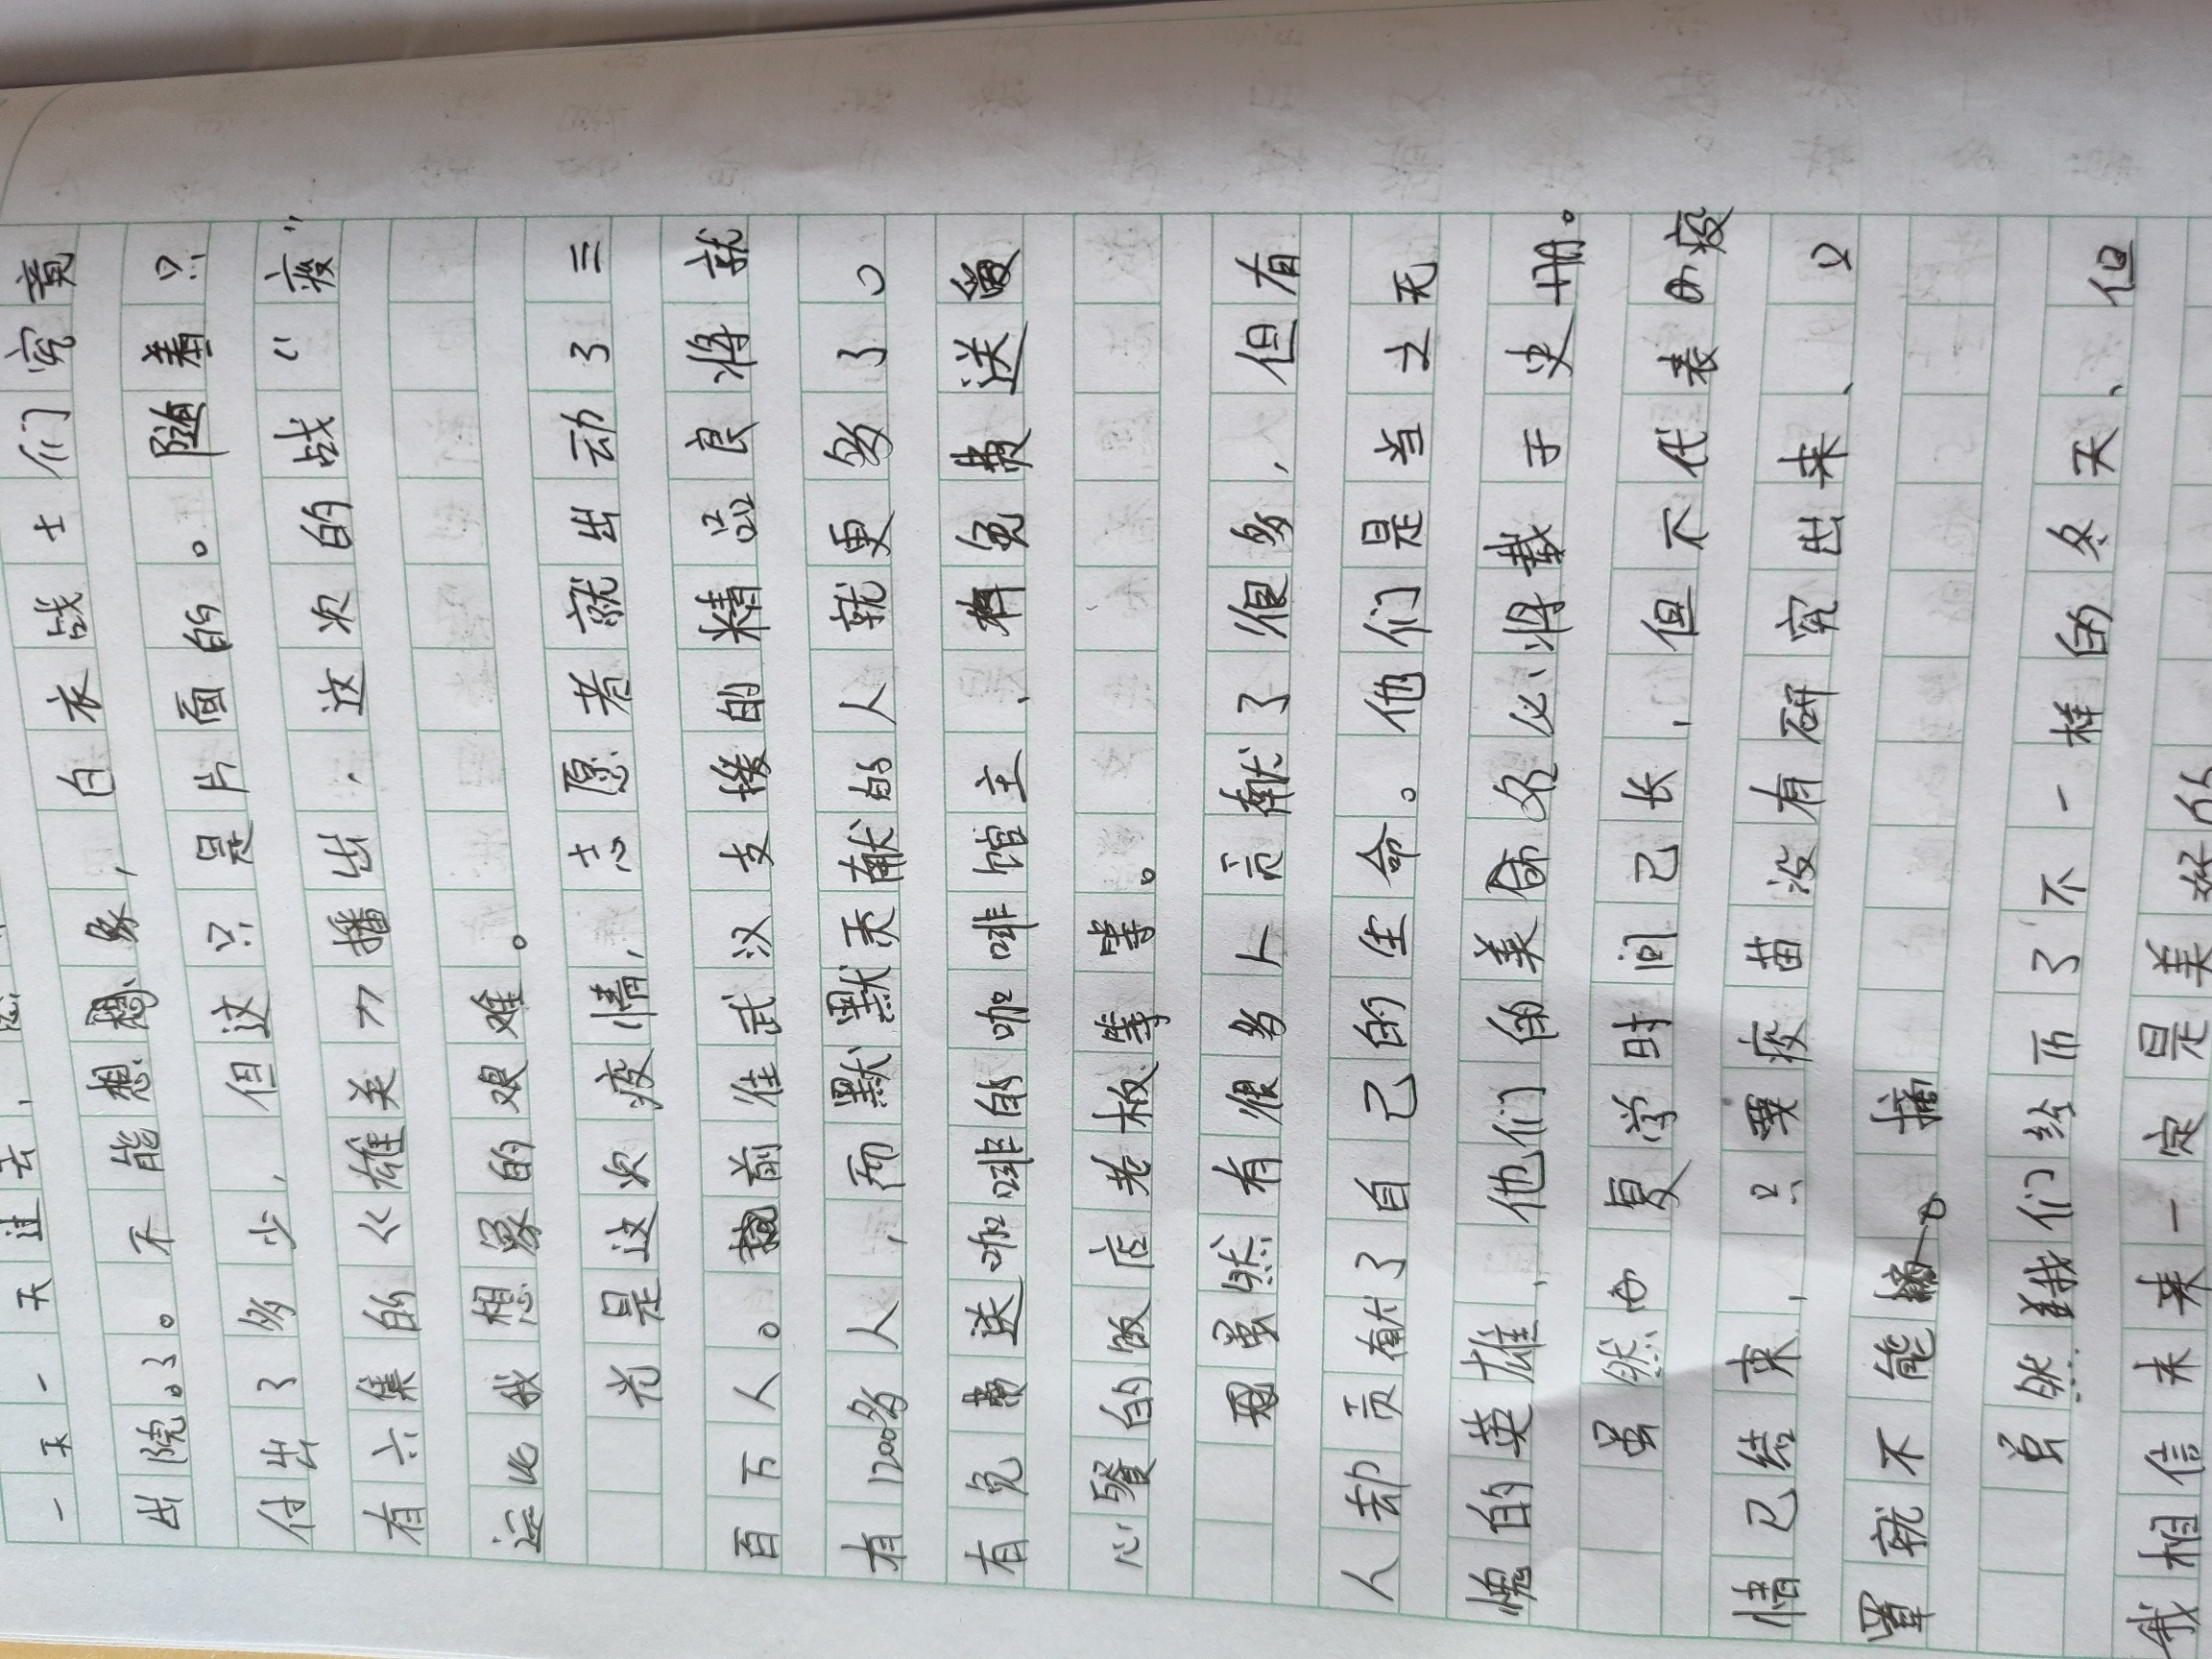 一天一天过去，
出院了。不能想象，白衣战士们究竟
付出了多少，但这只是片面的。随着只
有六集的《雄关》播出，这次的战“疫”
远比我想象的艰难。
光是这次疫情，志愿者就出动了三
百万人。前往武汉支援的精品良将就
有1200多人，而默默贡献的人就更多了。
有免费送咖啡的咖啡馆主、有免费送爱
心餐的饭店老板等等。
虽然有很多人贡献了很多，但有
人却贡献了自己的生命。他们是当之无
愧的英雄，他们的美名必将载于史册。
虽然 复学时间已长，但不代表的疫
情已结束，只要疫苗没有研究出来、口
罩就不能摘。
虽然我们经历了不一样的冬天、但
我相信未来一定是美好的